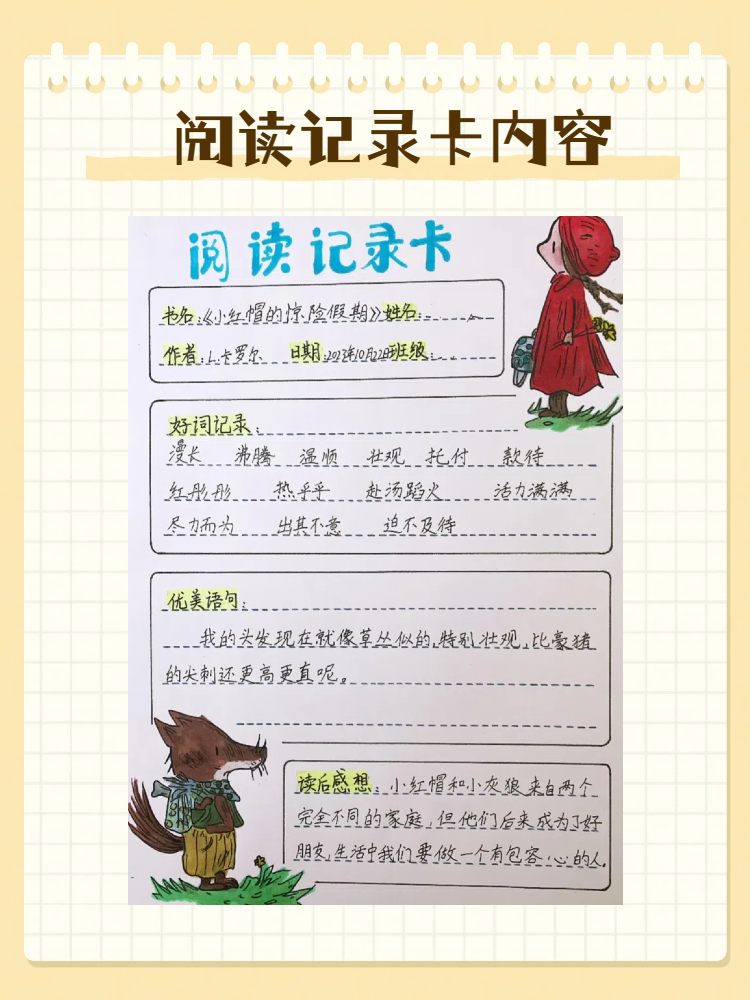 阅读记录卡内容
阅读记录卡
书名:《小红帽的惊险假期》姓名:
作者:L.卡罗尔 日期:2023年10月22日班级:
好词记录:
漫长 沸腾 温顺 壮观 托付 款待
红彤彤 热乎乎 赴汤蹈火 活力满满
尽力而为 出其不意 迫不及待
优美语句:
我的头发现在就像草丛似的,特别壮观,比豪猪
的尖刺还更高更直呢。
读后感想:小红帽和小灰狼来自两个
完全不同的家庭,但他们后来成为了好
朋友,生活中我们要做一个有包容心的人.